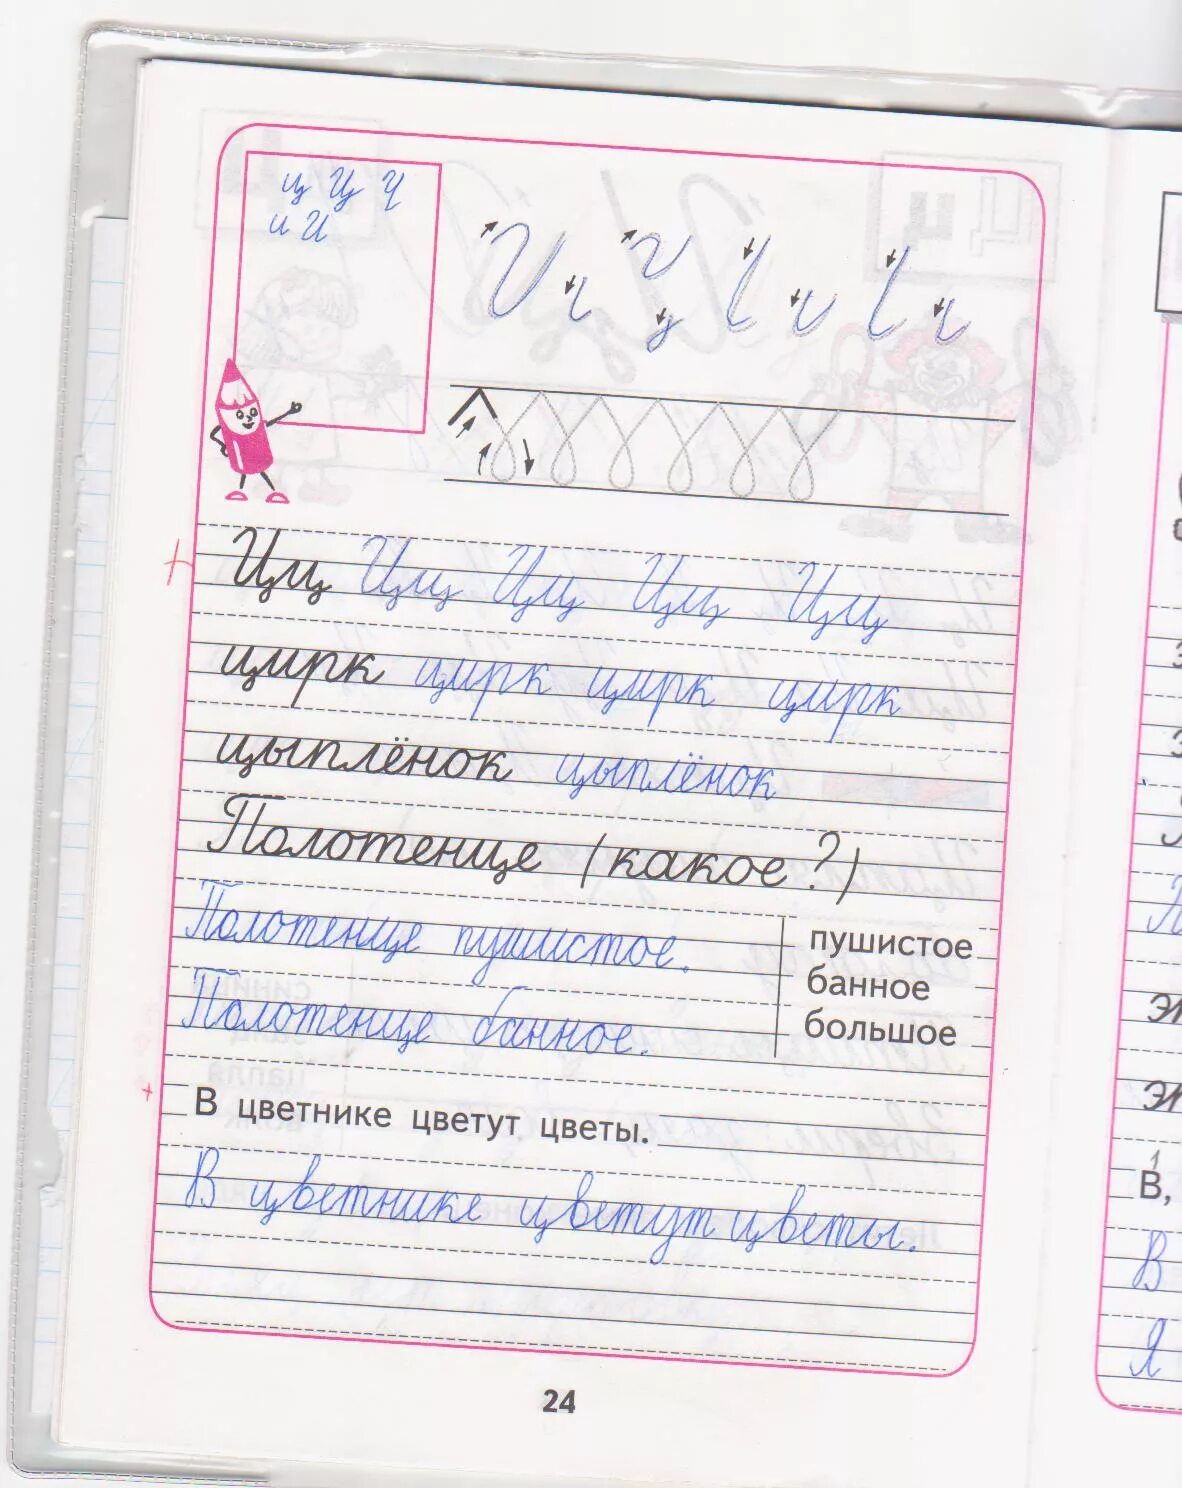 ц Ц Ч
и И
Цц Цц Цц Цц Цц
цирк цирк цирк цирк
цыплёнок цыплёнок
Полотенце (какое?)
Полотенце пушистое.
Полотенце банное.
пушистое
банное
большое
В цветнике цветут цветы.
В цветнике цветут цветы.
24
В,
В
Я